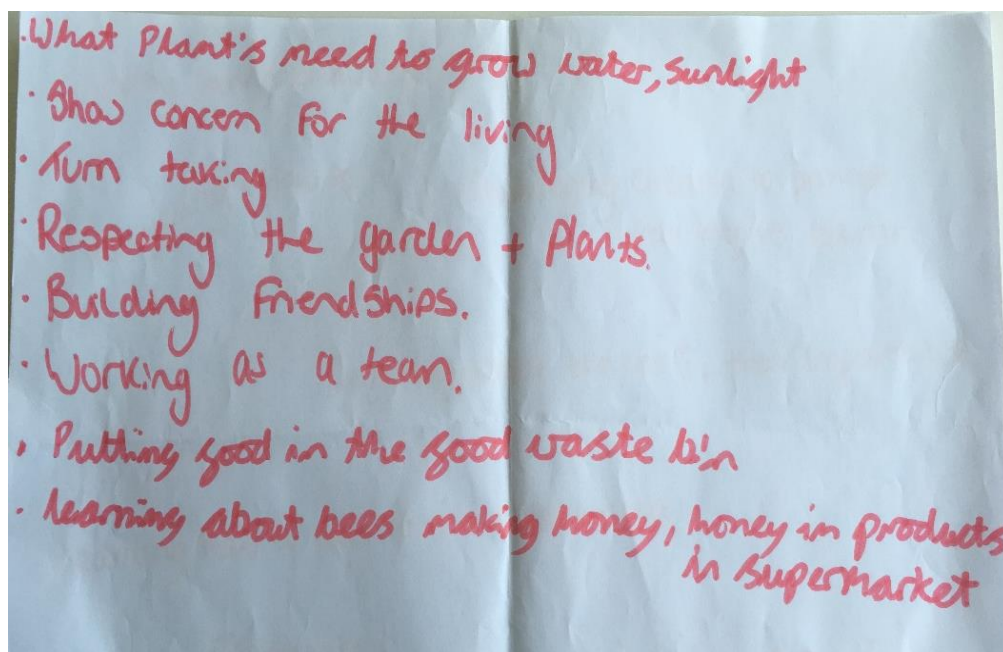 · What Plant's need to grow water, sunlight
· Show concern for the living
· Turn taking
· Respecting the garden + Plants.
· Building Friendships.
· Working as a team.
· Putting food in the food waste bin
· Learning about bees making honey, honey in products
in supermarket